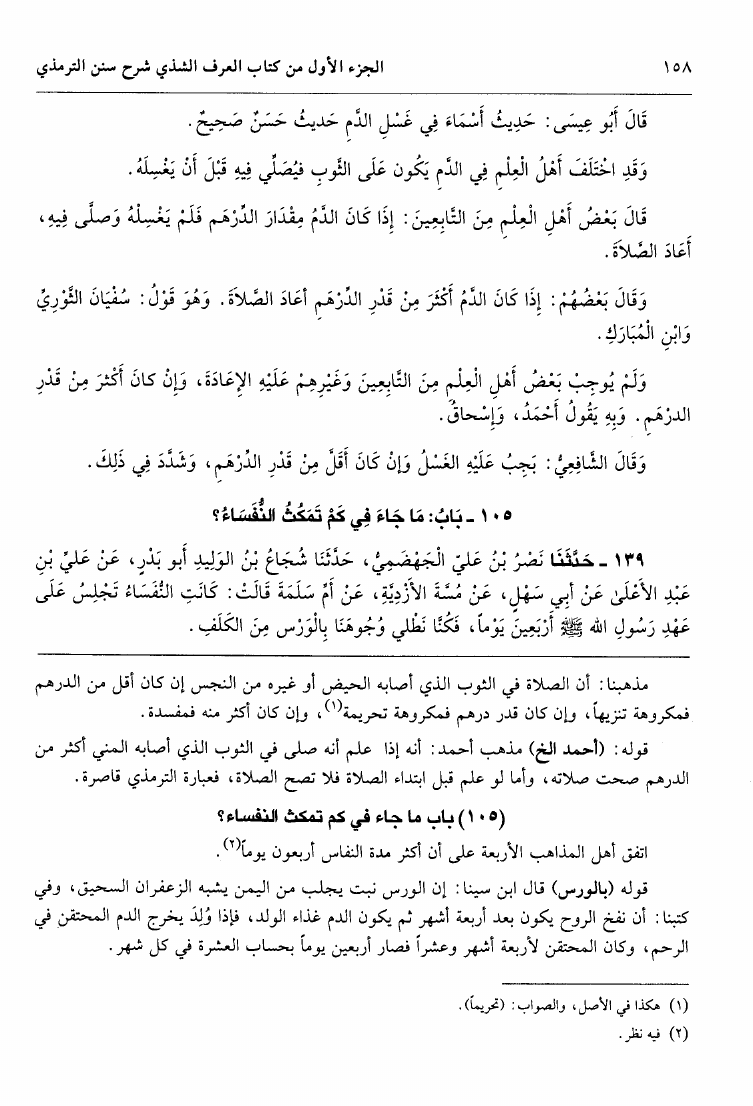 ١٥٨ الجزء الأول من كتاب العرف الشذي شرح سنن الترمذي
قَالَ أَبُو عِيسَى: حَدِيثُ أَسْمَاءَ فِي غَسْلِ الدَّمِ حَديثُ حَسَنٌ صَحِيحٌ.
وَقَدِ اخْتَلَفَ أَهْلُ الْعِلْمِ فِي الدَّمِ يَكُون عَلَى الثَّوبِ فَيُصَلِّي فِيهِ قَبْلَ أَنْ يَغْسِلَهُ.
قَالَ بَعْضُ أَهْلِ الْعِلْمِ مِنَ التَّابِعِينَ: إِذَا كَانَ الدَّمُ مِقْدَارَ الدِّرْهَمِ فَلَمْ يَغْسِلْهُ وَصلَّى فِيهِ،
أَعَادَ الصَّلاَةَ.
وَقَالَ بَعْضُهُمْ: إِذَا كَانَ الدَّمُ أَكْثَرَ مِنْ قَدْرِ الدِّرْهَمِ أعَادَ الصَّلاَةَ. وَهُوَ قَوْلُ: سُفْيَانَ الثَّوْرِيِّ
وَابْنِ الْمُبَارَكِ.
وَلَمْ يُوجِبْ بَعْضُ أَهْلِ الْعِلْمِ مِنَ التَّابِعينَ وَغَيْرِهِمْ عَلَيْهِ الإِعَادَةَ، وَإِنْ كانَ أَكْثَرَ مِنْ قَدْرِ
الدرْهَمِ. وَبِهِ يَقُولُ أَحْمَدُ، وَإِسْحاقُ.
وَقَالَ الشَّافِعِيُّ: يَجِبُ عَلَيْهِ الغَسْلُ وَإِنْ كَانَ أَقَلَّ مِنْ قَدْرِ الدِّرْهَمِ، وَشَدَّدَ فِي ذَلِكَ.
١٠٥ ـ بَابُ: مَا جَاءَ فِي كَمْ تَمَكثُ النُّفَسَاءُ؟
١٣٩ ـ حَدَّثَنَا نَصْرُ بْنُ عَلِيّ الْجَهْضَمِيُّ، حَدَّثَنَا شُجَاعُ بْنُ الوَلِيدِ أَبو بَدْرٍ، عَنْ عَلِيِّ بْنِ
عَبْدِ الأَعْلَىٰ عَنْ أَبي سَهْلٍ، عَنْ مُسَّةَ الأَزْدِيَّةِ، عَن أُمِّ سَلَمَةَ قَالَتْ: كَانَتِ النُّفَسَاءُ تَجْلِسُ عَلَى
عَهْدِ رَسُولِ الله ﷺ أَرْبَعِينَ يَوْماً، فَكُنَّا نَطْلي وُجُوهَنَا بِالْوَرْسِ مِنَ الكَلَفِ.
مذهبنا: أن الصلاة في الثوب الذي أصابه الحيض أو غيره من النجس إن كان أقل من الدرهم
فمكروهة تنزيهاً، وإن كان قدر درهم فمكروهة تحريمة(١)، وإن كان أكثر منه فمفسدة.
قوله: (أحمد الخ) مذهب أحمد: أنه إذا علم أنه صلى في الثوب الذي أصابه المني أكثر من
الدرهم صحت صلاته، وأما لو علم قبل ابتداء الصلاة فلا تصح الصلاة، فعبارة الترمذي قاصرة.
(١٠٥) باب ما جاء في كم تمكث النفساء؟
اتفق أهل المذاهب الأربعة على أن أكثر مدة النفاس أربعون يوماً(٢).
قوله (بالورس) قال ابن سينا: إن الورس نبت يجلب من اليمن يشبه الزعفران السحيق، وفي
كتبنا: أن نفخ الروح يكون بعد أربعة أشهر ثم يكون الدم غذاء الولد، فإذا وُلِدَ يخرج الدم المحتقن في
الرحم، وكان المحتقن لأربعة أشهر وعشراً فصار أربعين يوماً بحساب العشرة في كل شهر.
(١) هكذا في الأصل، والصواب: (تحريماً).
(٢) فيه نظر.